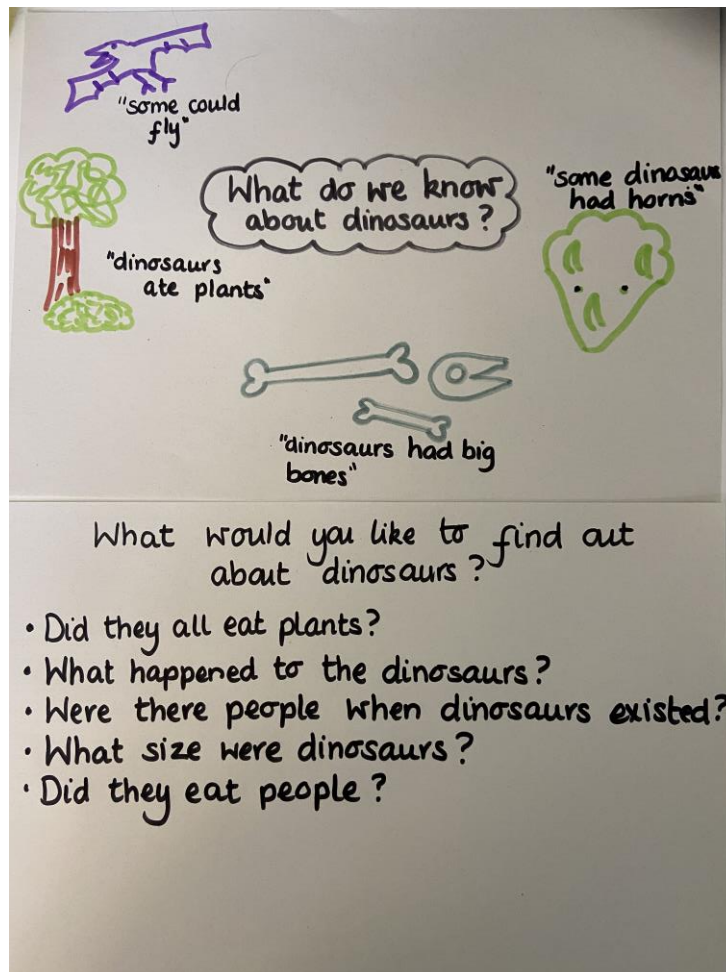 "some could
fly"
What do we know
about dinosaurs?
"some dinosaurs
had horns"
"dinosaurs
ate plants"
"dinosaurs had big
bones"
What would you like to find out
about dinosaurs?
• Did they all eat plants?
• What happened to the dinosaurs?
• Were there people when dinosaurs existed?
• What size were dinosaurs?
• Did they eat people?